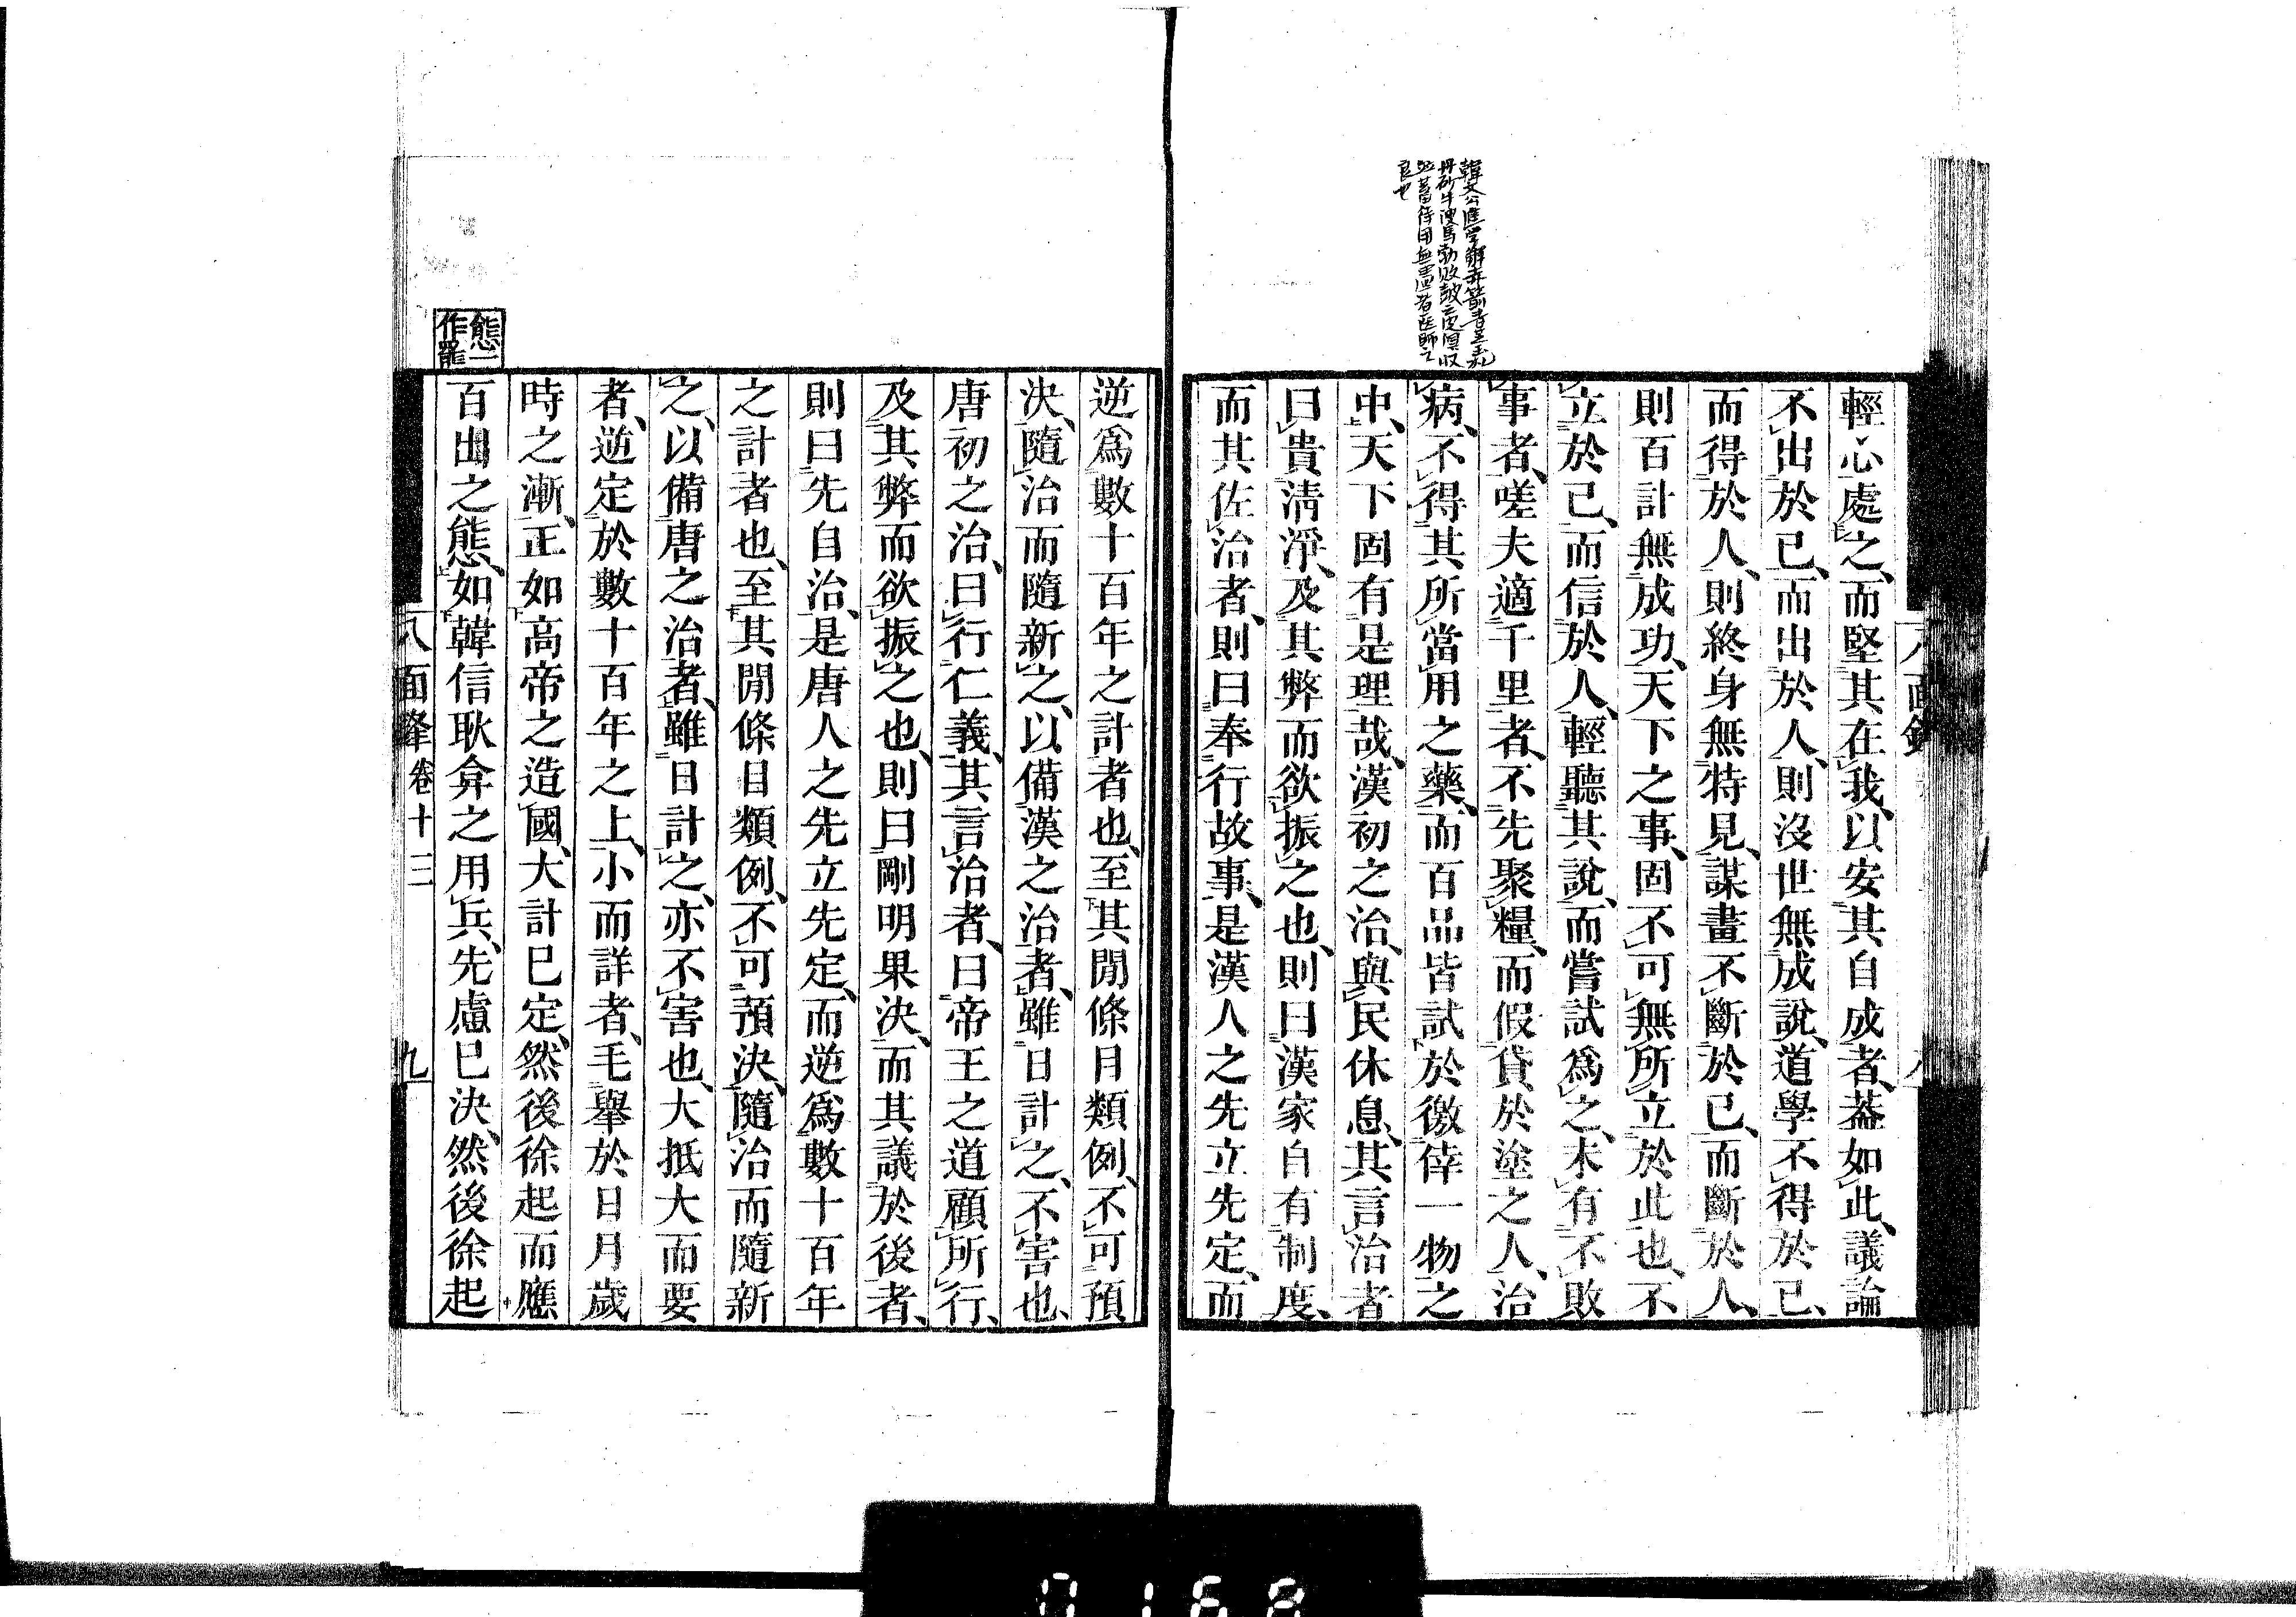 輕心處之、而堅其在我、以安其自成者、葢如此、議論
不出於已、而出於人、則沒世無成說、道學不得於已、
而得於人、則終身無特見、謀畫不斷於已、而斷於人、
則百計無成功、天下之事、固不可無所立於此也、不
立於己、而信於人、輕聽其說、而嘗試爲之、未有不敗
事者、嗟夫適千里者、不先聚糧、而假貸於塗之人、治
病、不得其所當用之藥、而百品皆試於徼倖一物之
中、天下固有是理哉、漢初之治、與民休息、其言治者
曰貴淸淨、及其弊而欲振之也、則曰漢家自有制度、
而其佐治者、則曰奉行故事、是漢人之先立先定、而
逆爲數十百年之計者也、至其閒條目類例、不可預
決、隨治而隨新之、以備漢之治者、雖日計之、不害也、
唐初之治、曰行仁義、其言治者、曰帝王之道顧所行、
及其弊而欲振之也、則曰剛明果決、而其議於後者、
則曰先自治、是唐人之先立先定、而逆爲數十百年
之計者也、至其閒條目類例、不可預決、隨治而隨新
之、以備唐之治者、雖日計之、亦不害也、大抵大而要
者、逆定於數十百年之上、小而詳者、毛舉於日月歲
時之漸、正如高帝之造國、大計已定、然後徐起而應
百出之態、如韓信耿弇之用兵、先慮已決、然後徐起
態一
作羆
韓文公進學解赤箭青芝玉札
丹砂牛溲馬勃敗鼓之皮俱收
並蓄待用無遺者医師之
良也
八面鋒 卷十三 九
0168